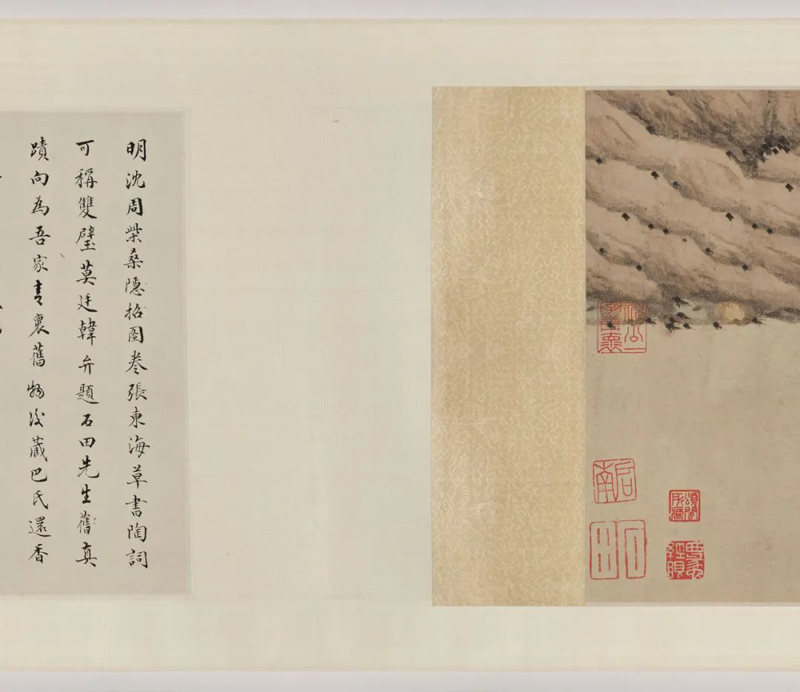 明沈周柴桑隱招圖卷張東海草書陶詞
可稱雙璧莫廷韓弁題石田先生舊真
蹟向為吾家裏舊物後藏巴氏還香
启南